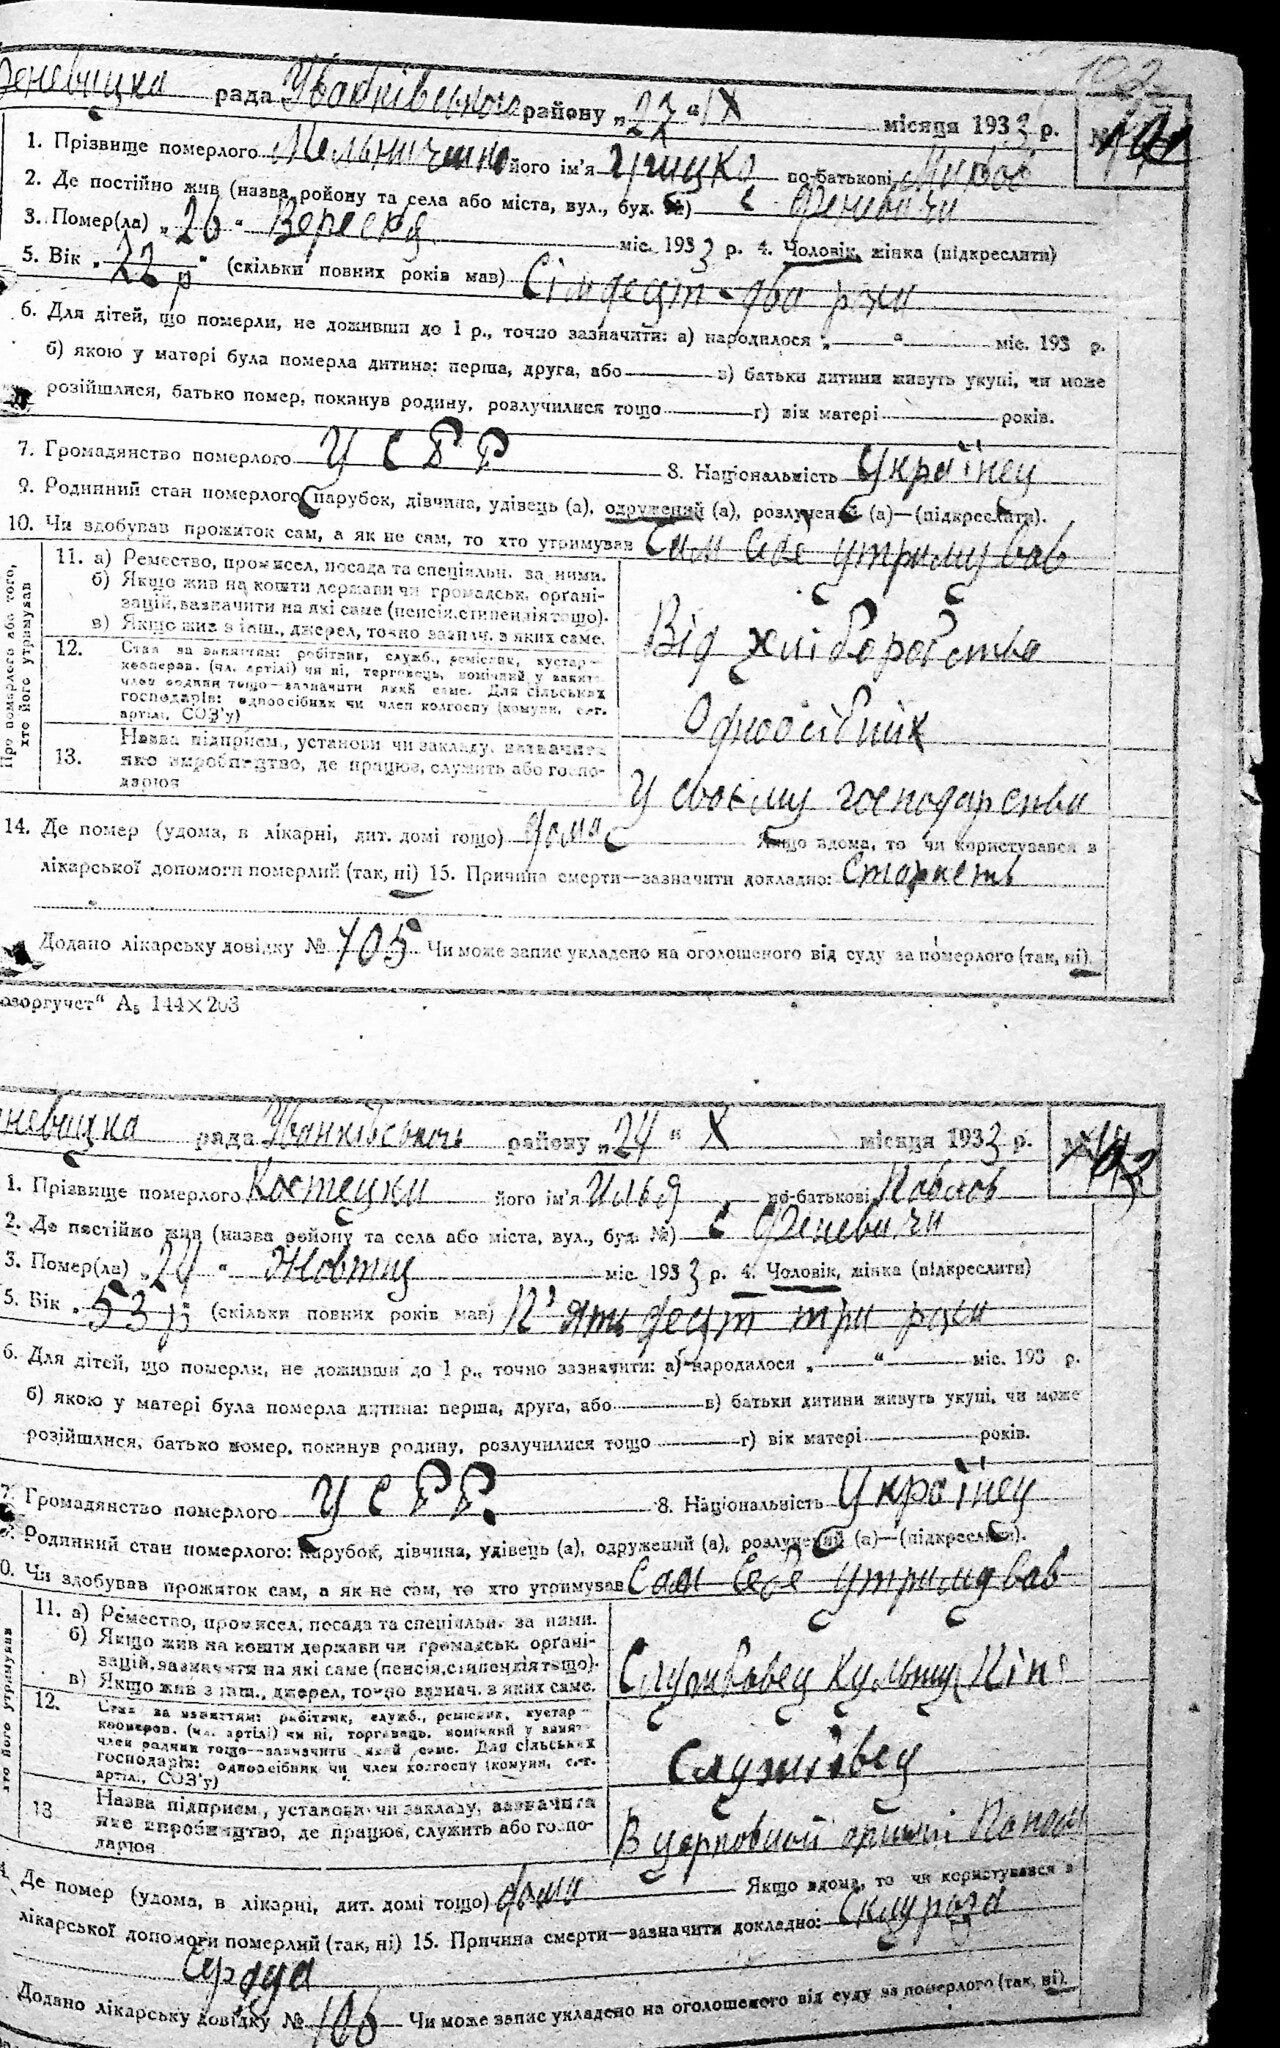 102
рада Іванківського району „27“ IX місяця 1933 р. №
1. Прізвище померлого Мельниченко його ім'я Грицко по-батькові
2. Де постійно жив (назва району та села або міста, вул., буд. №) с Феневичи
3. Помер(ла) „26“ Вересня міс. 1933 р. 4. Чоловік, жінка (підкреслити)
5. Вік „72 р“ (скільки повних років мав) Сімдецят-два роки
6. Для дітей, що померли, не доживши до 1 р., точно зазначити: а) народилося „ “ міс. 193 р.
б) якою у матері була померла дитина: перша, друга, або в) батьки дитини живуть укупі, чи може
розійшлися, батько помер, покинув родину, розлучилися тощо г) вік матері років.
7. Громадянство померлого УСРР 8. Національність Українец
9. Родинний стан померлого: парубок, дівчина, удівець (а), одружений (а), розлучений (а)—(підкреслити).
10. Чи здобував прожиток сам, а як не сам, то хто утримував Сам себе утримував
Про померлого або того,
хто його утримував
11. а) Ремество, промисел, посада та спеціяльн. за ними.
б) Якщо жив на кошти держави чи громадськ. орґані-
зацій, зазначити на які саме (пенсія, стипендія тощо).
в) Якщо жив з інш., джерел, точно зазнач. з яких саме.
Від хліборобства
12. Стан за заняттям: робітник, служб., ремісник, кустар—
кооперов. (чл. артілі) чи ні, торговець, помічний у занят.
член родини тощо—зазначити який саме. Для сільських
господарів: одноосібник чи член колгоспу (комуни, с.-г.
артілі, СОЗ'у)
Одноосібник
13. Назва підприєм., установи чи закладу, зазначити
яке виробництво, де працює, служить або госпо-
дарює
У своєму господарстві
14. Де помер (удома, в лікарні, дит. домі тощо) дома Якщо вдома, то чи користувався з
лікарської допомоги померлий (так, ні) 15. Причина смерти—зазначити докладно: Старість
Додано лікарську довідку № 105 Чи може запис укладено на оголошеного від суду за померлого (так, ні).
А5 144×203
рада Іванківського району „24“ X місяця 1933 р. №
1. Прізвище померлого Костецки його ім'я Илья по-батькові Павлов
2. Де постійно жив (назва району та села або міста, вул., буд. №) с Феневичи
3. Помер(ла) „24“ Жовтня міс. 1933 р. 4. Чоловік, жінка (підкреслити)
5. Вік „53 р“ (скільки повних років мав) П'ятидецят три роки
6. Для дітей, що померли, не доживши до 1 р., точно зазначити: а) народилося „ “ міс. 193 р.
б) якою у матері була померла дитина: перша, друга, або в) батьки дитини живуть укупі, чи може
розійшлися, батько помер, покинув родину, розлучилися тощо г) вік матері років.
7. Громадянство померлого УСРР. 8. Національність Українец
9. Родинний стан померлого: парубок, дівчина, удівець (а), одружений (а), розлучений (а)—(підкреслити).
0. Чи здобував прожиток сам, а як не сам, то хто утримував Сам себе утримував
хто його утримував
11. а) Ремество, промисел, посада та спеціяльн. за ними.
б) Якщо жив на кошти держави чи громадськ. орґані-
зацій, зазначити на які саме (пенсія, стипендія тощо).
в) Якщо жив з інш., джерел, точно зазнач. з яких саме.
Службовец культу
12. Стан за заняттям: робітник, служб., ремісник, кустар—
кооперов. (чл. артілі) чи ні, торговець, помічний у занят.
член родини тощо—зазначити який саме. Для сільських
господарів: одноосібник чи член колгоспу (комуни, с.-г.
артілі, СОЗ'у)
13. Назва підприєм., установи чи закладу, зазначити
яке виробництво, де працює, служить або госпо-
дарює
В церковной
Де помер (удома, в лікарні, дит. домі тощо) дома Якщо вдома, то чи користувався з
лікарської допомоги померлий (так, ні) 15. Причина смерти—зазначити докладно: Склуроза
Сердца
Додано лікарську довідку № 106 Чи може запис укладено на оголошеного від суду за померлого (так, ні).